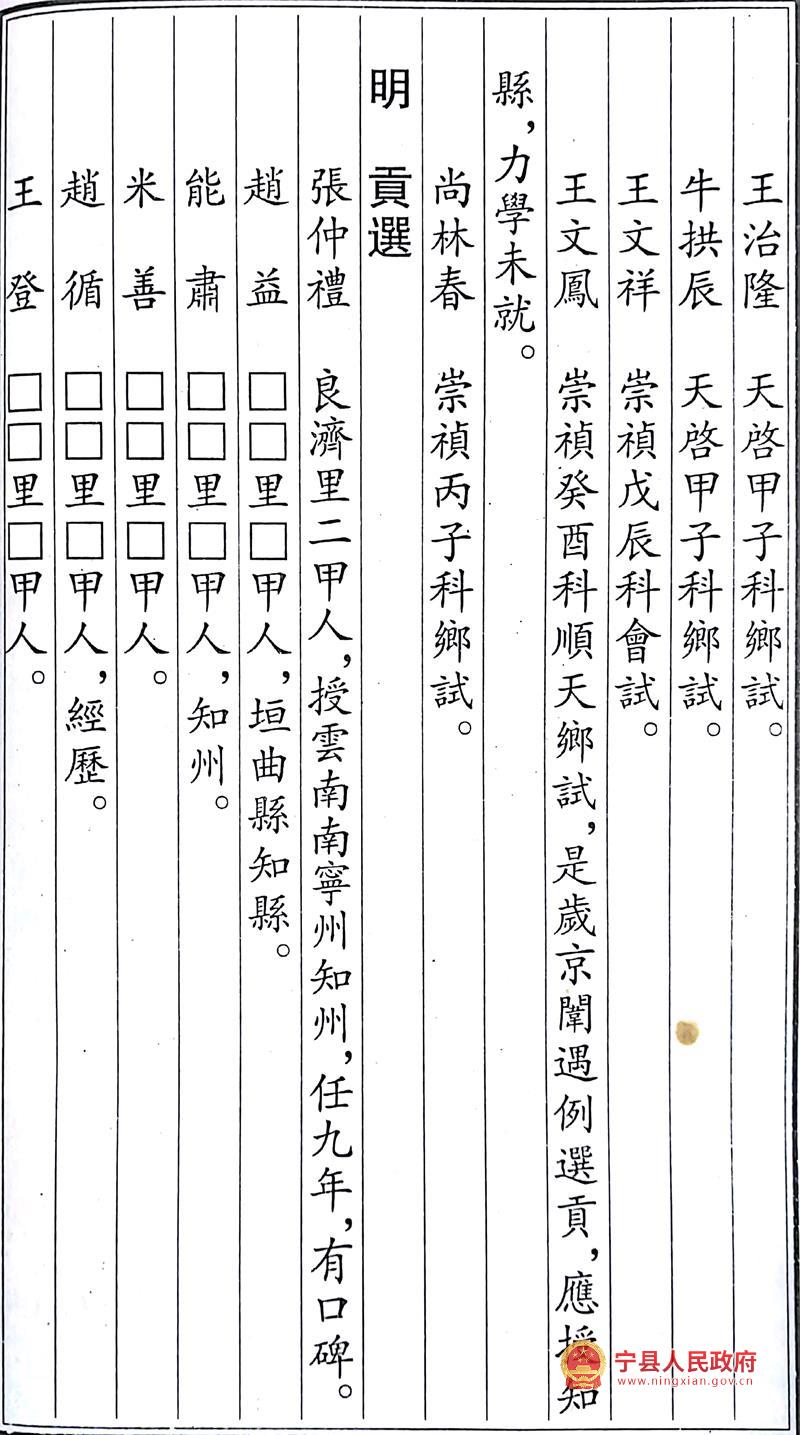 王治隆 天啓甲子科鄉試。
牛拱辰 天啓甲子科鄉試。
王文祥 崇禎戊辰科會試。
王文鳳 崇禎癸酉科順天鄉試，是歲京闈遇例選貢，應授知
縣，力學未就。
尚林春 崇禎丙子科鄉試。
明 貢選
張仲禮 良濟里二甲人，授雲南南寧州知州，任九年，有口碑。
趙益 □□里□甲人，垣曲縣知縣。
能肅 □□里□甲人，知州。
米善 □□里□甲人。
趙循 □□里□甲人，經歷。
王登 □□里□甲人。
宁县人民政府
www.ningxian.gov.cn